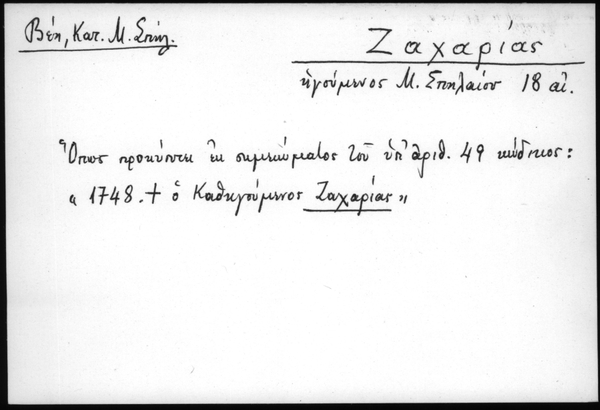 Βέη, Κατ. Μ. Σπηλ.
Ζαχαρίας
ἡγούμενος Μ. Σπηλαίου 18 αἰ.
Ὅπως προκύπτει ἐκ σημειώματος τοῦ ὑπ' ἀριθ. 49 κώδικος:
« 1748. + ὁ Καθηγούμενος Ζαχαρίας »